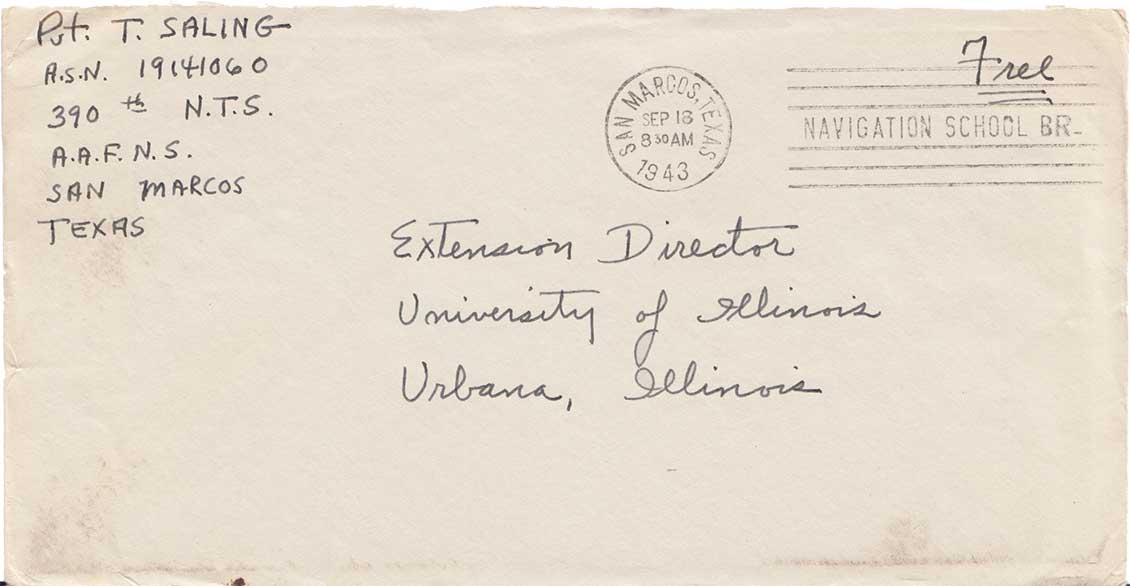 Pvt. T. SALING
A.S.N. 19141060
390th N.T.S.
A.A.F.N.S.
SAN MARCOS
TEXAS
SAN MARCOS, TEXAS
SEP 18
8 30 AM
1943
Free
NAVIGATION SCHOOL BR.
Extension Director
University of Illinois
Urbana, Illinois